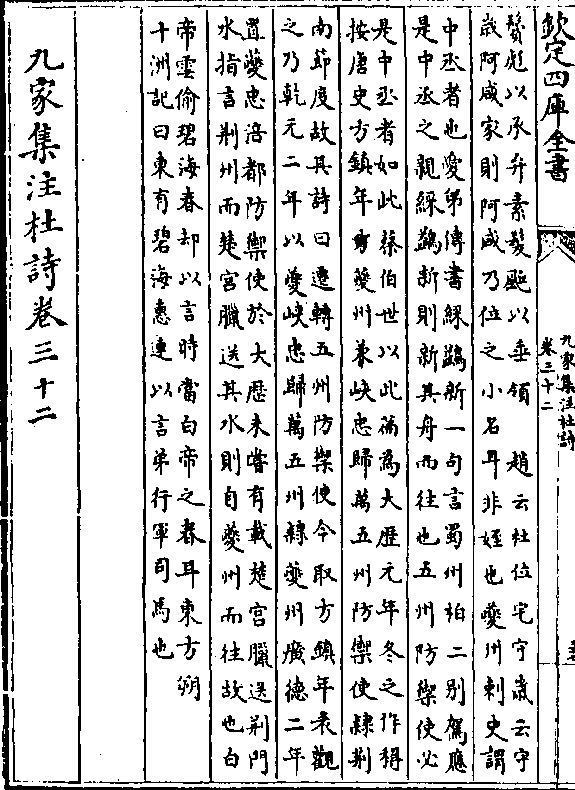 欽定四庫全書
九家集注杜詩
卷三十二
鬒彪以承弁素髪颯以垂領　趙云杜位宅守嵗云守
嵗阿咸家則阿咸乃位之小名耳非姪也夔州刺史謂
中丞者也愛弟傳書綵鷁新一句言蜀州柏二别駕應
是中丞之親綵鷁新則新其舟而往也五州防禦使必
是中丞者如此蔡伯世以此篇為大歴元年冬之作稱
按唐史方鎮年表夔州兼峽忠歸萬五州防禦使隸荆
南節度故其詩曰遷轉五州防禦使今取方鎮年表觀
之乃乾元二年以夔峽忠歸萬五州隸夔州廣德二年
置夔忠涪都防禦使於大歴未嘗有載楚宫臘送荆門
水指言荆州而楚宫臘送其水則自夔州而往故也白
帝雲偷碧海春却以言時當白帝之春耳東方朔
十洲記曰東有碧海惠連以言弟行軍司馬也
九家集注杜詩卷三十二